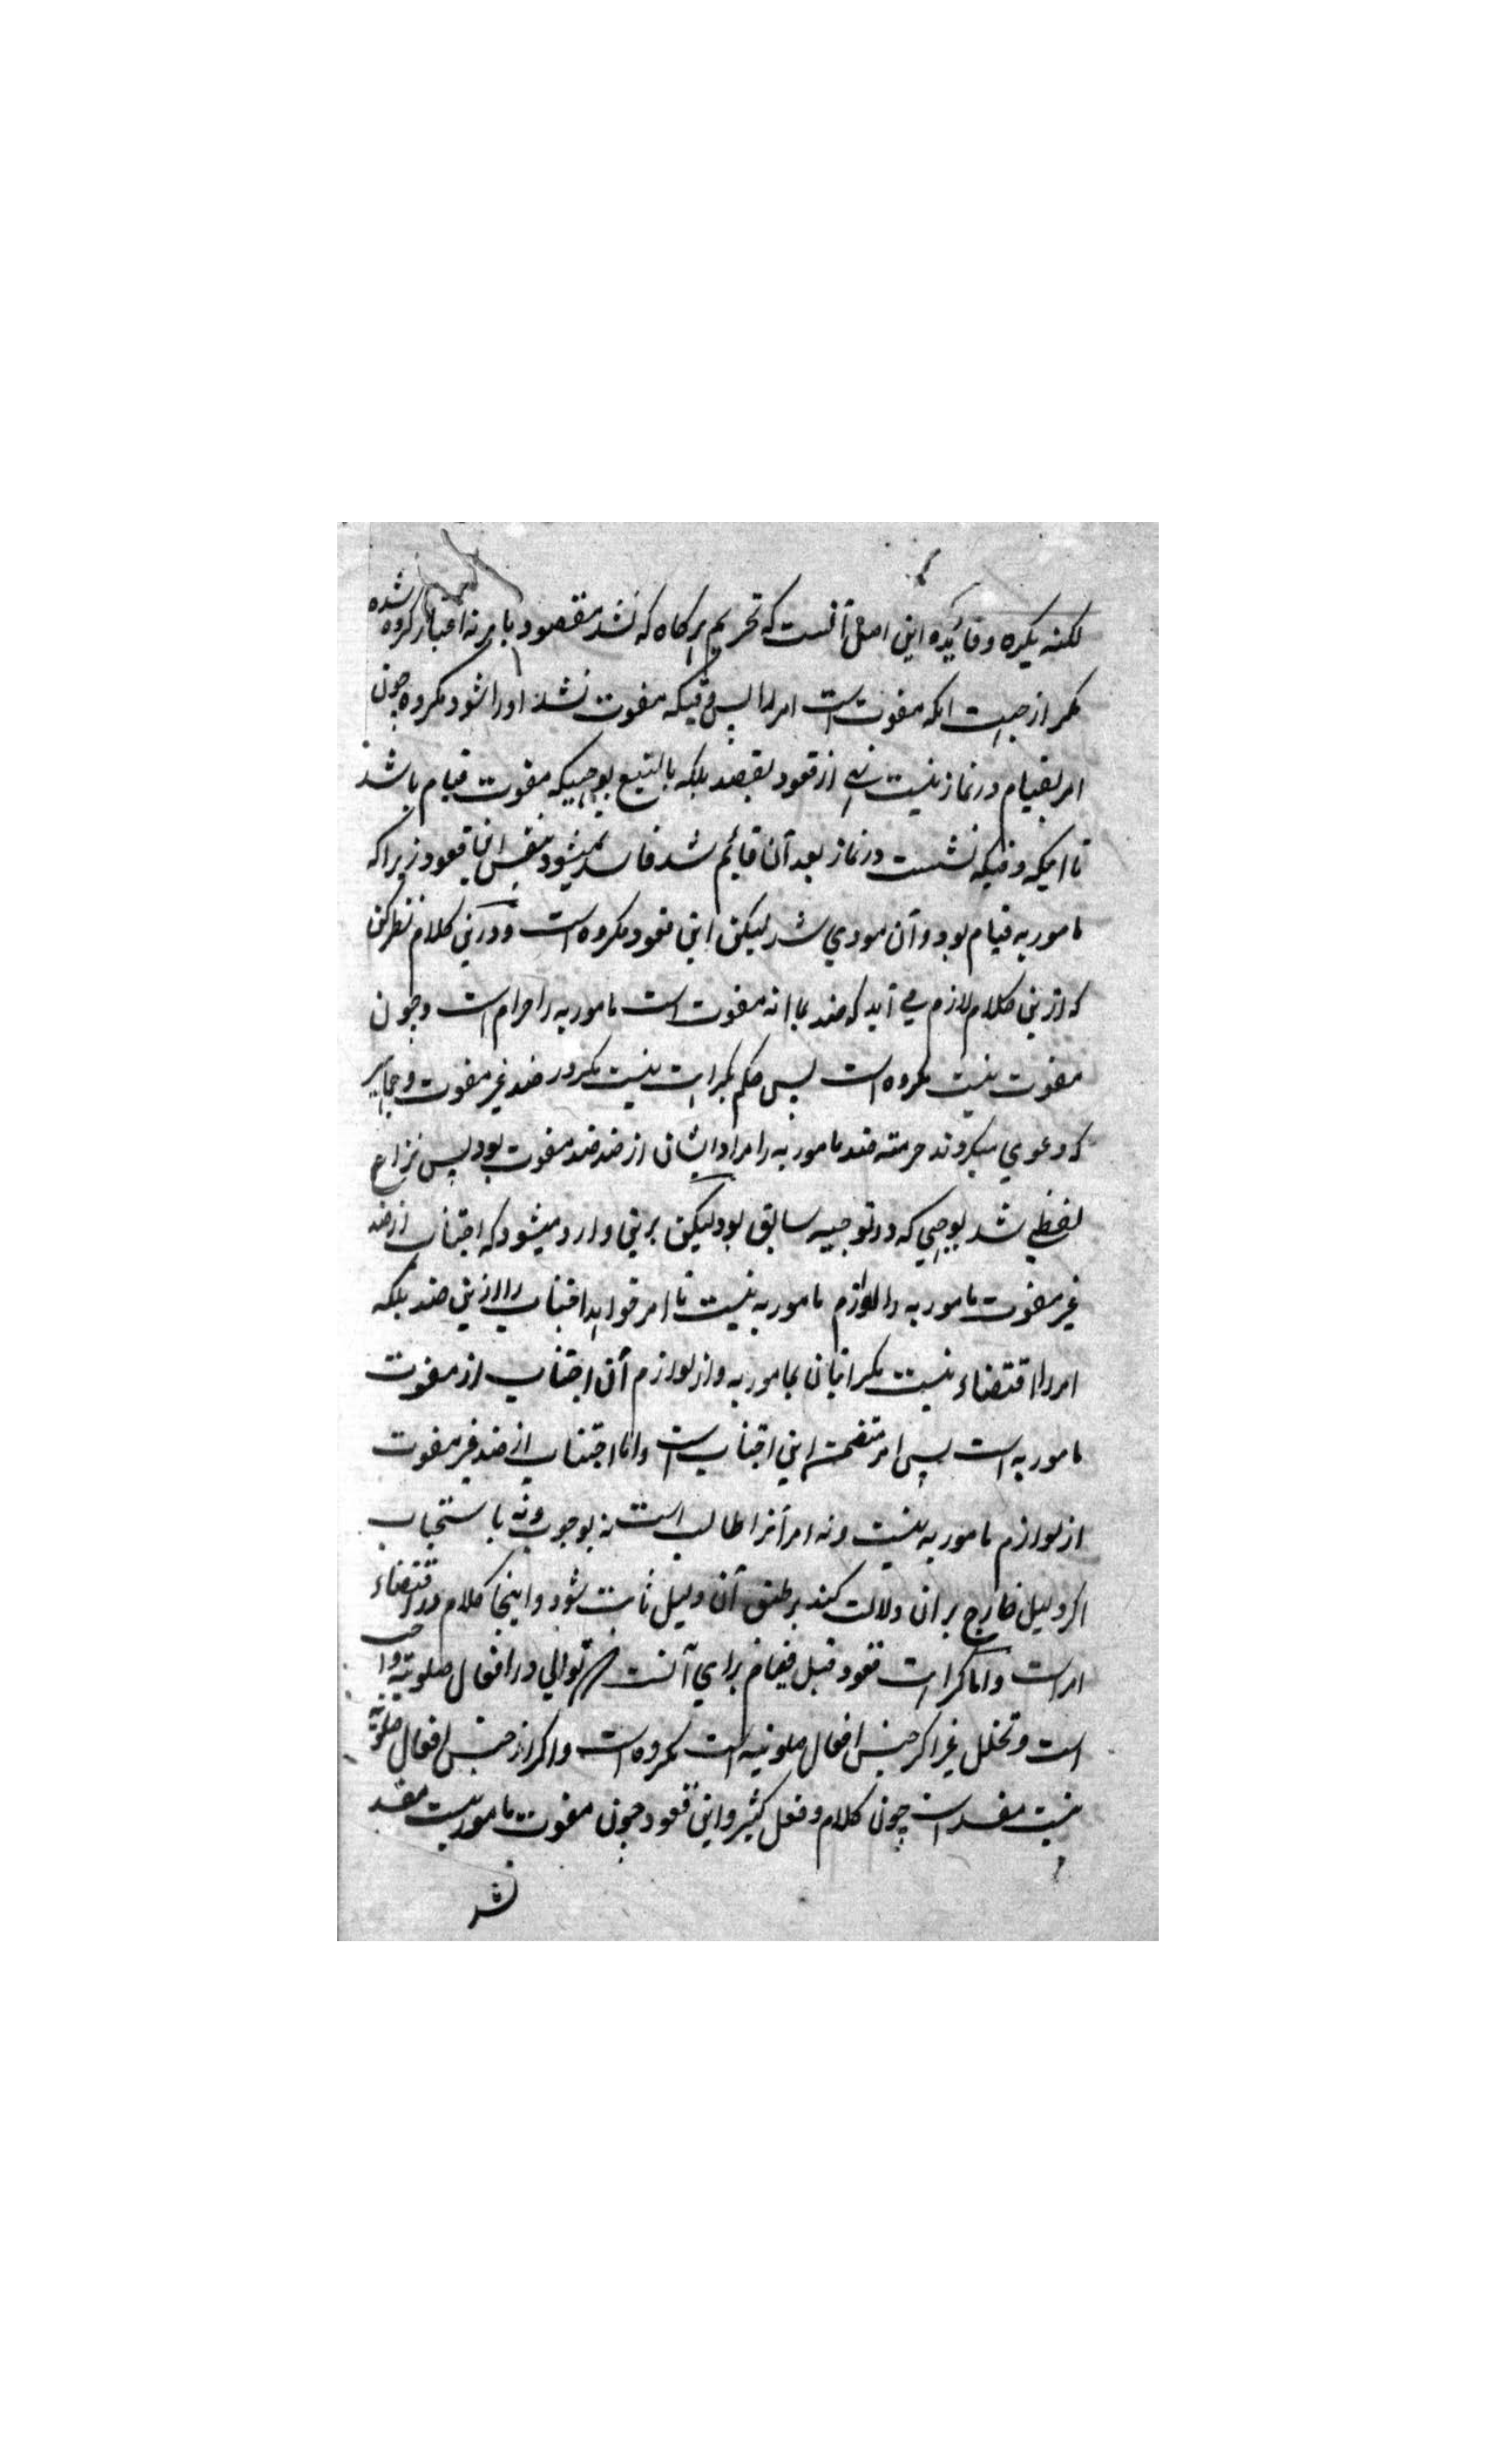 لکنه یکره و فائده این اصل آنست که تحریم هرکاه که نشد مقصود بامر نه اعتبار کرده شده
مکر از جهت انکه مفوت است امر را پس وقتیکه مفوت نشد اورا شود مکروه چون
امر بقیام در نماز نیست نهی از قعود بقصد بلکه بالتبع بوجهیکه مفوت قیام باشد
تا اینکه وقتیکه نشست در نماز بعد آن قائم شد فاسد نمیشود بنفس این قعود زیراکه
مامور به قیام بود و آن مودی شد لیکن این قعود مکروه است و درین کلام نظر کن
که ازین کلام لازم می آید که ضد بما انه مفوت است مامور به را حرام است و چون
مفوت نیست مکروه است پس حکم بکراهت نیست مکر در ضد غیر مفوت و جماهیر
که دعوی میکردند حرمته ضد مامور به را مراد ایشان از ضد ضد مفوت بود پس نزاع
لفظی شد بوجهی که در توجیه سابق بود لیکن برین وارد میشود که اجتناب از ضد
غیر مفوت مامور به را لوازم مامور به نیست تا امر خواهد اجتناب را ازین ضد بلکه
امر را اقتضاء نیست مکر اتیان بمامور به و از لوازم آن اجتناب از مفوت
مامور به است پس امر متضمن این اجتناب است و اما اجتناب از ضد غیر مفوت
از لوازم مامور به نیست و نه امر آنرا طالب است نه بوجوب و نه باستحباب
اکر دلیل خارج بر ان دلالت کند بر طبق آن دلیل ثابت شود و اینجا کلام در اقتضاء
امر است و اما کراهت قعود قبل قیام برای آنست که توالی در افعال صلوتیه واجب
است و تخلل غیر اکر جنس افعال صلوتیه است مکروه است و اکر از جنس افعال صلوتیه
نیست مفسد است چون کلام و فعل کثیر و این قعود چون مفوت مامور نیست مفسد
نشد